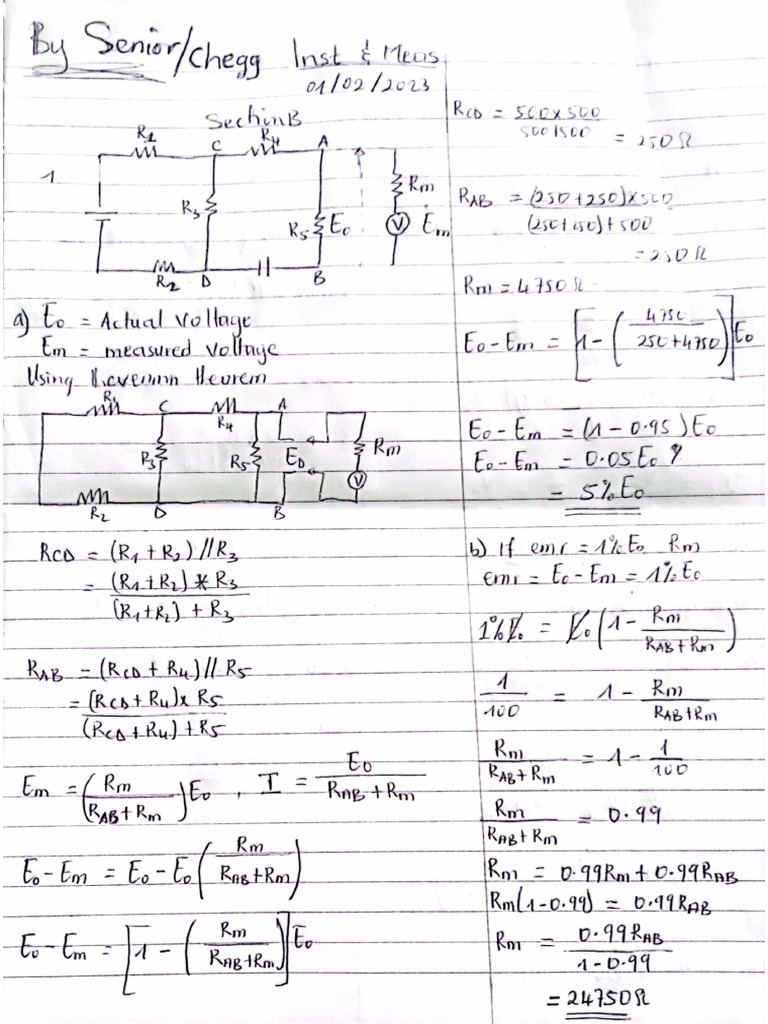 By Senior/Chegg Inst & Meas
01/02/2023
Section B
1
R1 C R4 A
R3
R5 E0
Rm
V Em
R2 D B
a) E0 = Actual voltage
Em = measured voltage
Using Thevenin theorem
R1 C R4 A
R3 R5 E0 Rm
V
R2 D B
RCD = (R1 + R2) // R3
= (R1 + R2) * R3
(R1 + R2) + R3
RAB = (RCD + R4) // R5
= (RCD + R4) x R5
(RCD + R4) + R5
Em = (Rm / RAB + Rm) E0 , I = E0 / RAB + Rm
E0 - Em = E0 - E0 (Rm / RAB + Rm)
E0 - Em = [1 - (Rm / RAB + Rm)] E0
RCD = 500 x 500
500 + 500 = 250Ω
RAB = (250 + 250) x 500
(250 + 250) + 500
= 250Ω
Rm = 4750Ω
E0 - Em = [1 - (4750 / 250 + 4750)] E0
E0 - Em = (1 - 0.95) E0
E0 - Em = 0.05 E0
= 5% E0
b) If = 1% E0 Rm
= E0 - Em = 1% E0
1% E0 = E0 (1 - Rm / RAB + Rm)
1 / 100 = 1 - Rm / RAB + Rm
Rm / RAB + Rm = 1 - 1 / 100
Rm / RAB + Rm = 0.99
Rm = 0.99Rm + 0.99RAB
Rm(1 - 0.99) = 0.99RAB
Rm = 0.99RAB / 1 - 0.99
= 24750Ω